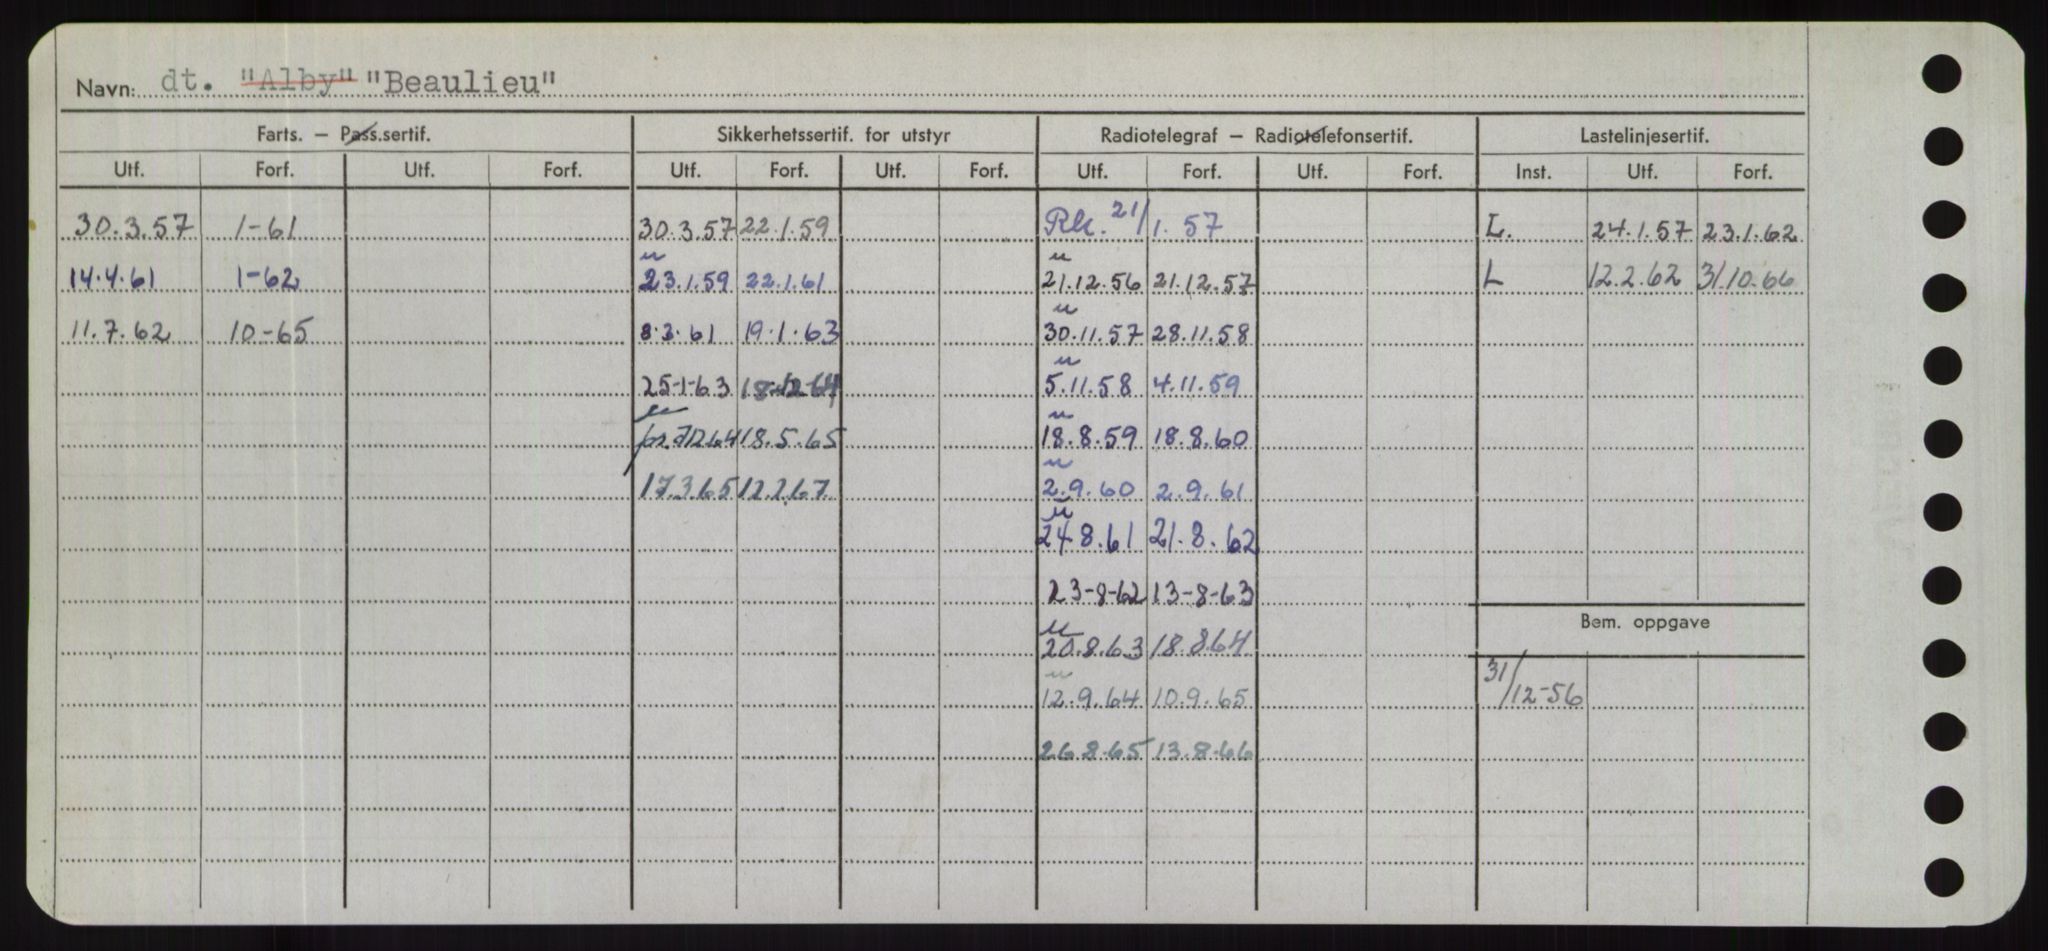 Navn: dt. "Alby" "Beaulieu"
Farts. — Pass.sertif. Sikkerhetssertif. for utstyr Radiotelegraf — Radiotelefonsertif. Lastelinjesertif.
Utf. Forf. Utf. Forf. Utf. Forf. Utf. Forf. Utf. Forf. Utf. Forf. Inst. Utf. Forf.
30.3.57 1-61 30.3.57 22.1.59 Rk. 21/1.57 L. 24.1.57 23.1.62
14.4.61 1-62 23.1.59 22.1.61 21.12.56 21.12.57 L 12.2.62 31.10.66
11.7.62 10-65 8.3.61 19.1.63 30.11.57 28.11.58
25-1-63 18-12-64 5.11.58 4.11.59
18.5.65 18.8.59 18.8.60
17.3.65 12.2.67 2.9.60 2.9.61
24.8.61 21.8.62
23-8-62 13-8-63
Bem. oppgave
20.8.63 18.8.64
31/12-56
12.9.64 10.9.65
26.8.65 13.8.66